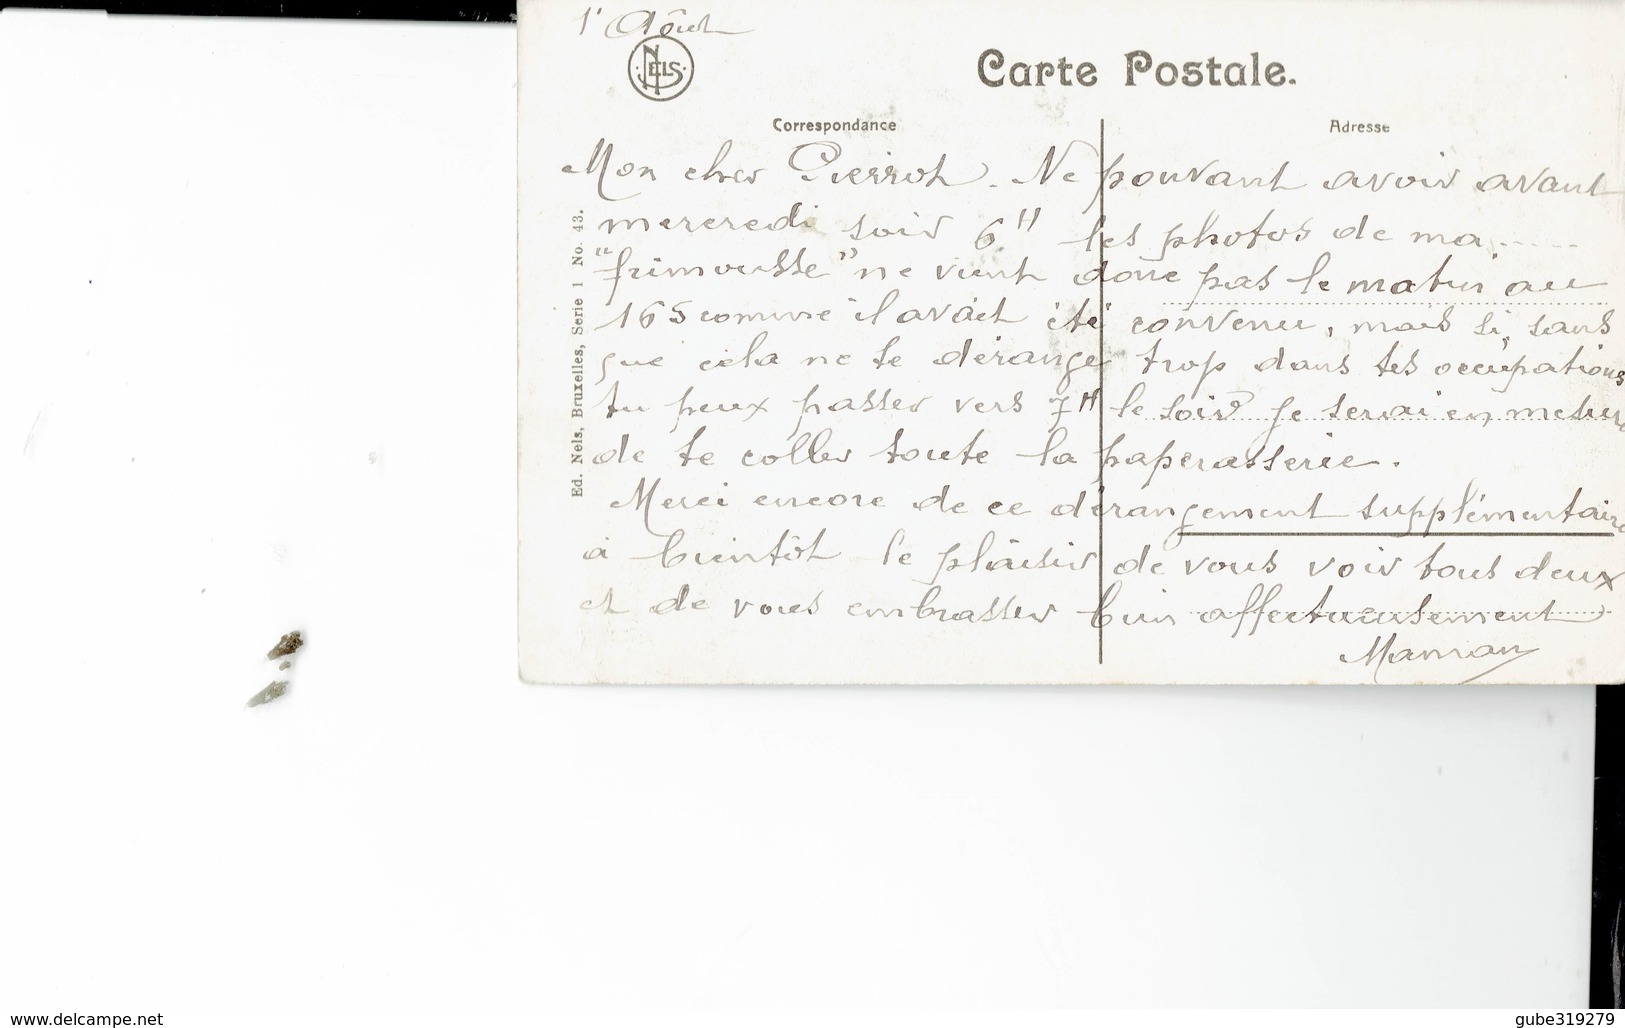 1r Aôut
NELS
Carte Postale.
Correspondance
Adresse
Mon cher Pierrot. Ne pouvant avoir avant
mercredi soir 6H les photos de ma .....
"frimousse" ne vient donc pas le matin au
165 comme il avait été convenu, mais si, sans
que cela ne te dérange trop dans tes occupations
tu peux passer vers 7H le soir je serai en mesure
de te coller toute la paperasserie.
Merci encore de ce dérangement supplémentaire
à bientôt le plaisir de vous voir tous deux
et de vous embrasser bien affectueusement
Ed. Nels, Bruxelles, Serie 1 No. 43.
www.delcampe.net
gube319279